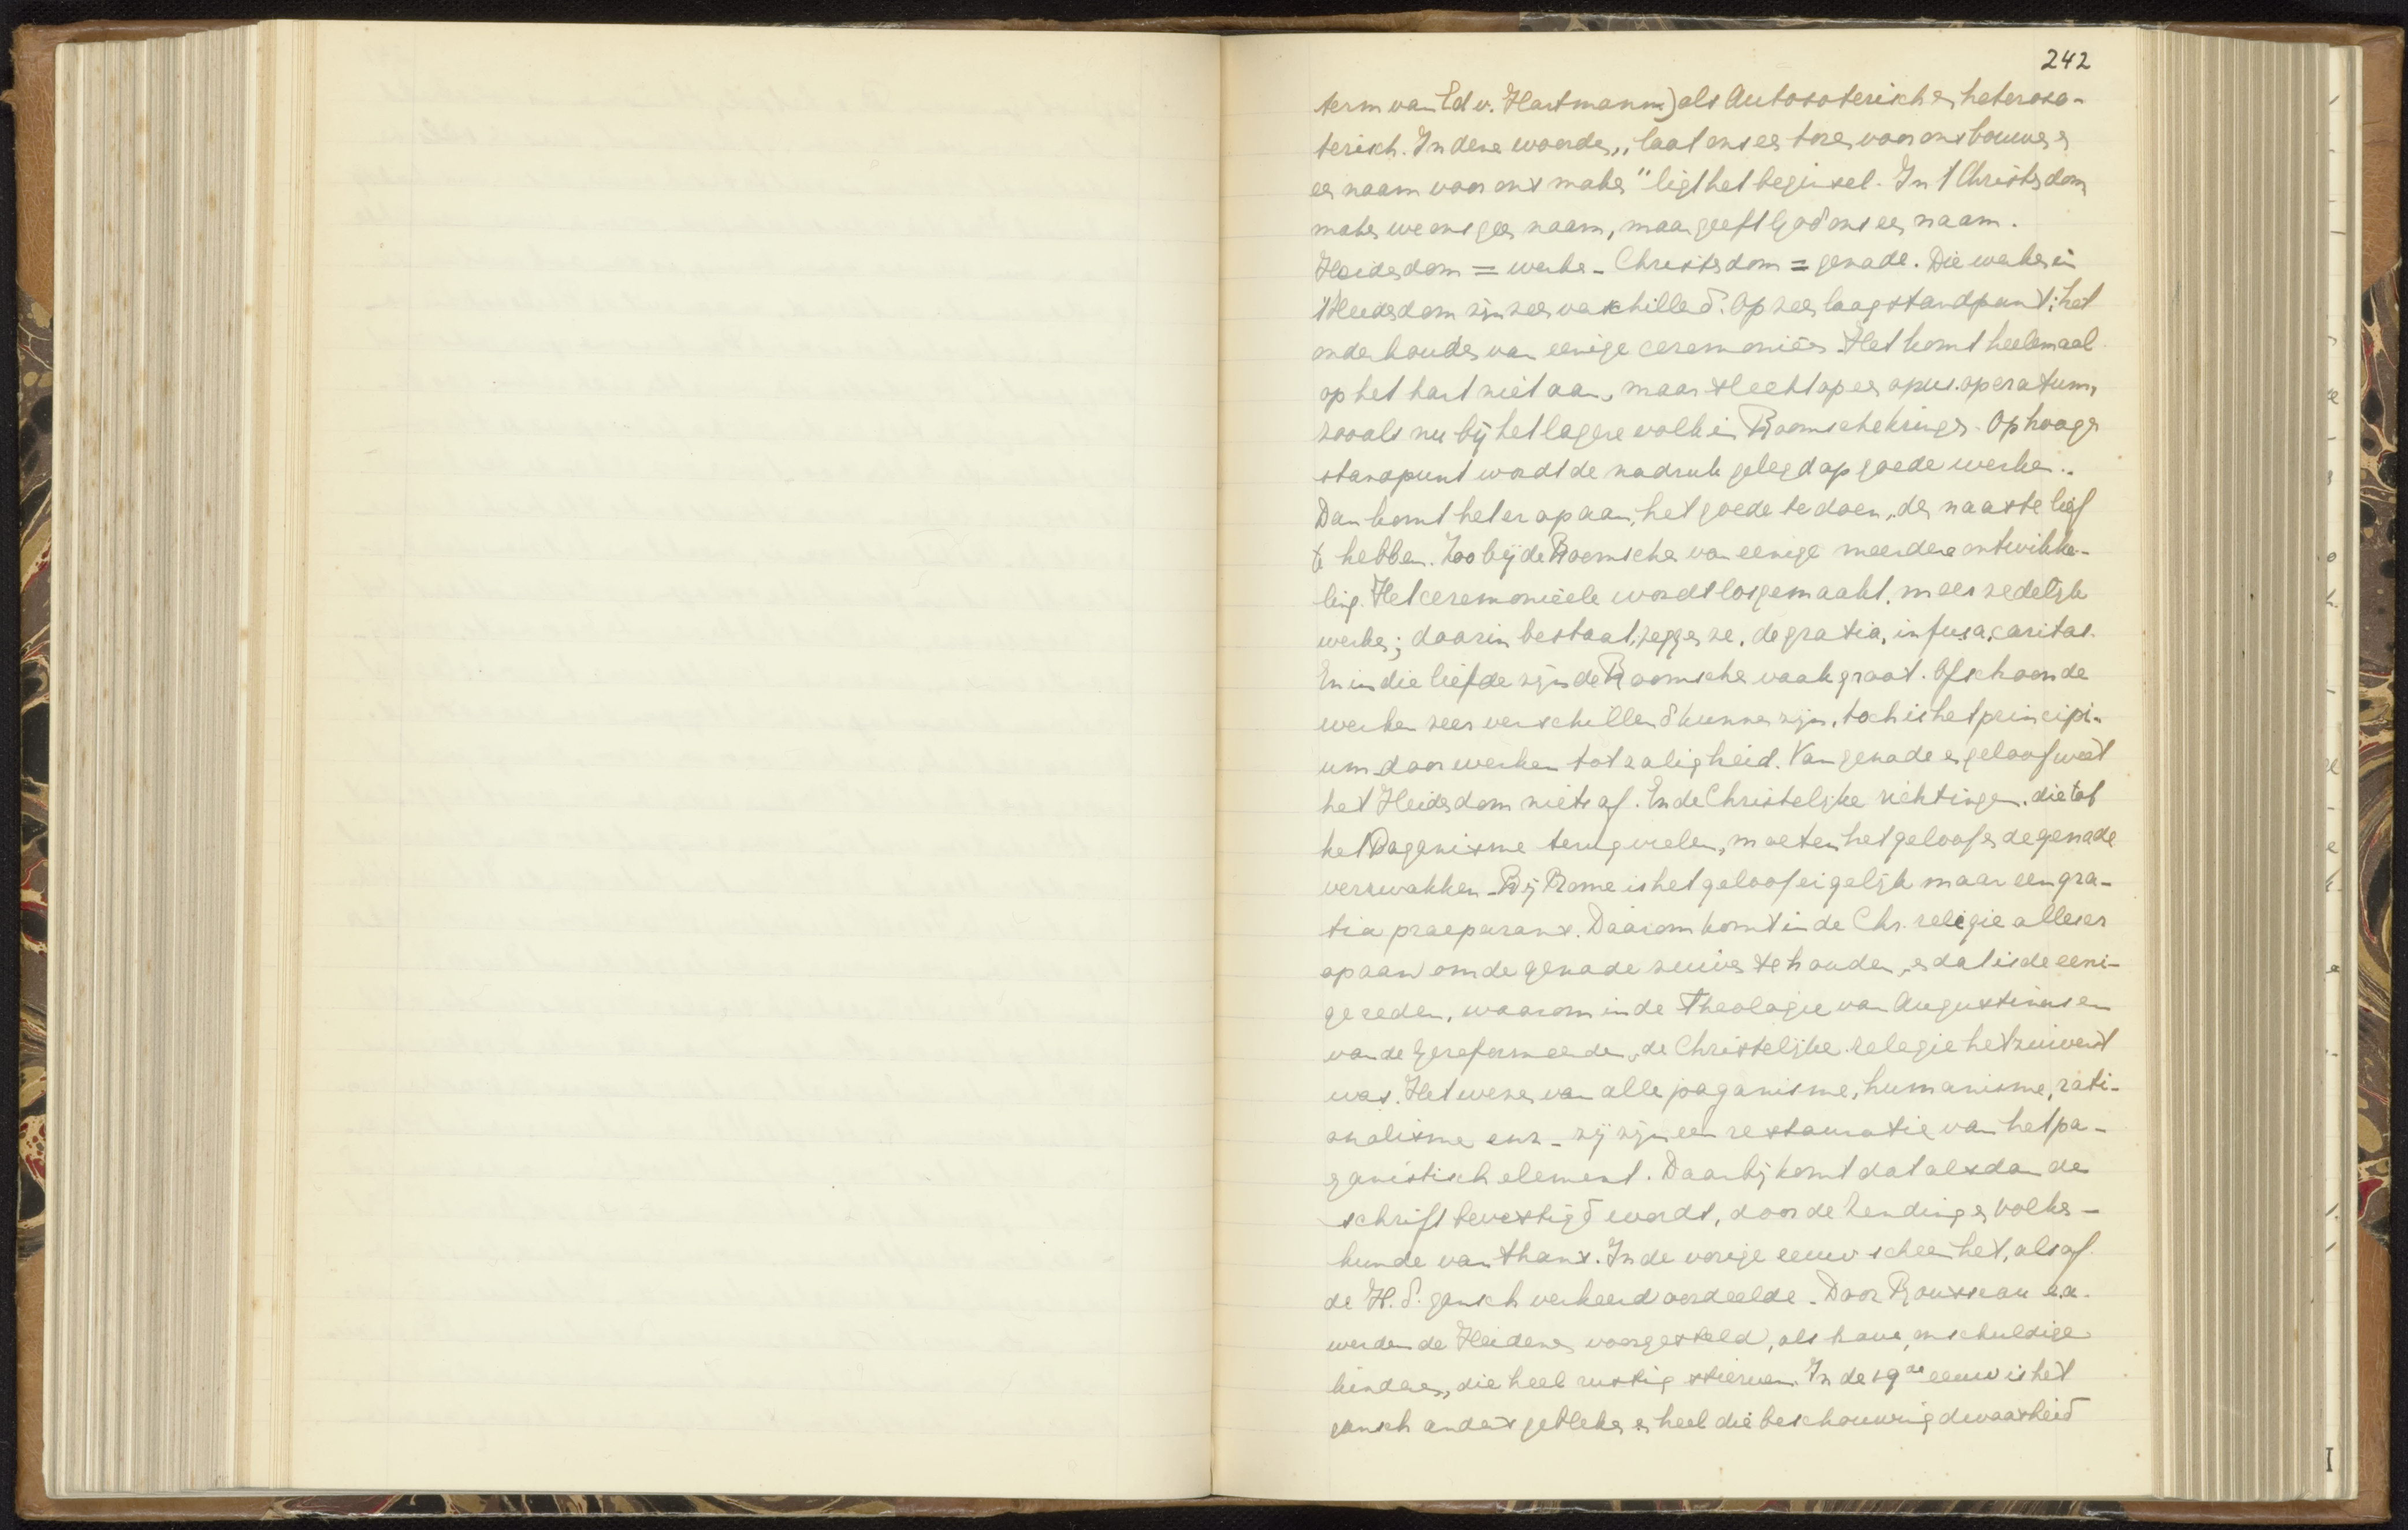 242
term van Ed v. Hartmann) als Autosoterisch en heteroso-
terisch. In deze woorden „laat ons een toren voor ons bouwen en
een naam voor ons maken" ligt het beginsel. In 't Christendom
maken we ons geen naam, maar geeft God ons een naam.
Heidendom = werken - Christendom = genade. Die werken in
't Heidendom zijn zeer verschillend. Op zeer laag standpunt: het
onderhouden van eenige ceremoniën. Het komt heelemaal
op het hart niet aan, maar slechts op een opus operatum,
zooals nu bij het lagere volk in Roomsche kringen. Op hooger
standpunt wordt de nadruk gelegd op goede werken.
Dan komt het er op aan, het goede te doen, den naaste lief
te hebben. Zoo bij de Roomschen van eenige meerdere ontwikke-
ling. Het ceremonieele wordt losgemaakt, m een zedelijk
werken; daarin bestaat, zeggen ze, de gratia, infusa, caritas.
En in die liefde zijn de Roomsche vaak groot. Ofschoon de
werken zeer verschillend kunnen zijn, toch is het principi-
um door werken tot zaligheid. Van genade en geloof weet
het Heidendom niets af. En de Christelijke richtingen, die tot
het Paganisme terugvielen, moeten het geloof en de genade
verzwakken. Bij Rome is het geloof eigelijk maar een gra-
tia praeparans. Daarom komt in de Chr. religie alles er
op aan om de genade zuiver te houden, en dat is de eeni-
ge reden, waarom in de Theologie van Augustinus en
van de Gereformeerden, de Christelijke relegie het zuiverst
was. Het wezen van alle paganisme, humanisme, rati-
onalisme enz - zij zijn een restauratie van het pa-
ganistisch element. Daarbij komt dat alsdan de
schrift bevestigd wordt, door de Zending en volken-
kunde van thans. In de vorige eeuw scheen het, alsof
de H. S. gansch verkeerd oordeelde. Door Rousseau e.a.
werden de Heidenen voorgesteld, als brave, onschuldige
kinderen, die heel rustig stierven. In de 19de eeuw is het
gansch anders gebleken en heel die beschouwing dwaasheid